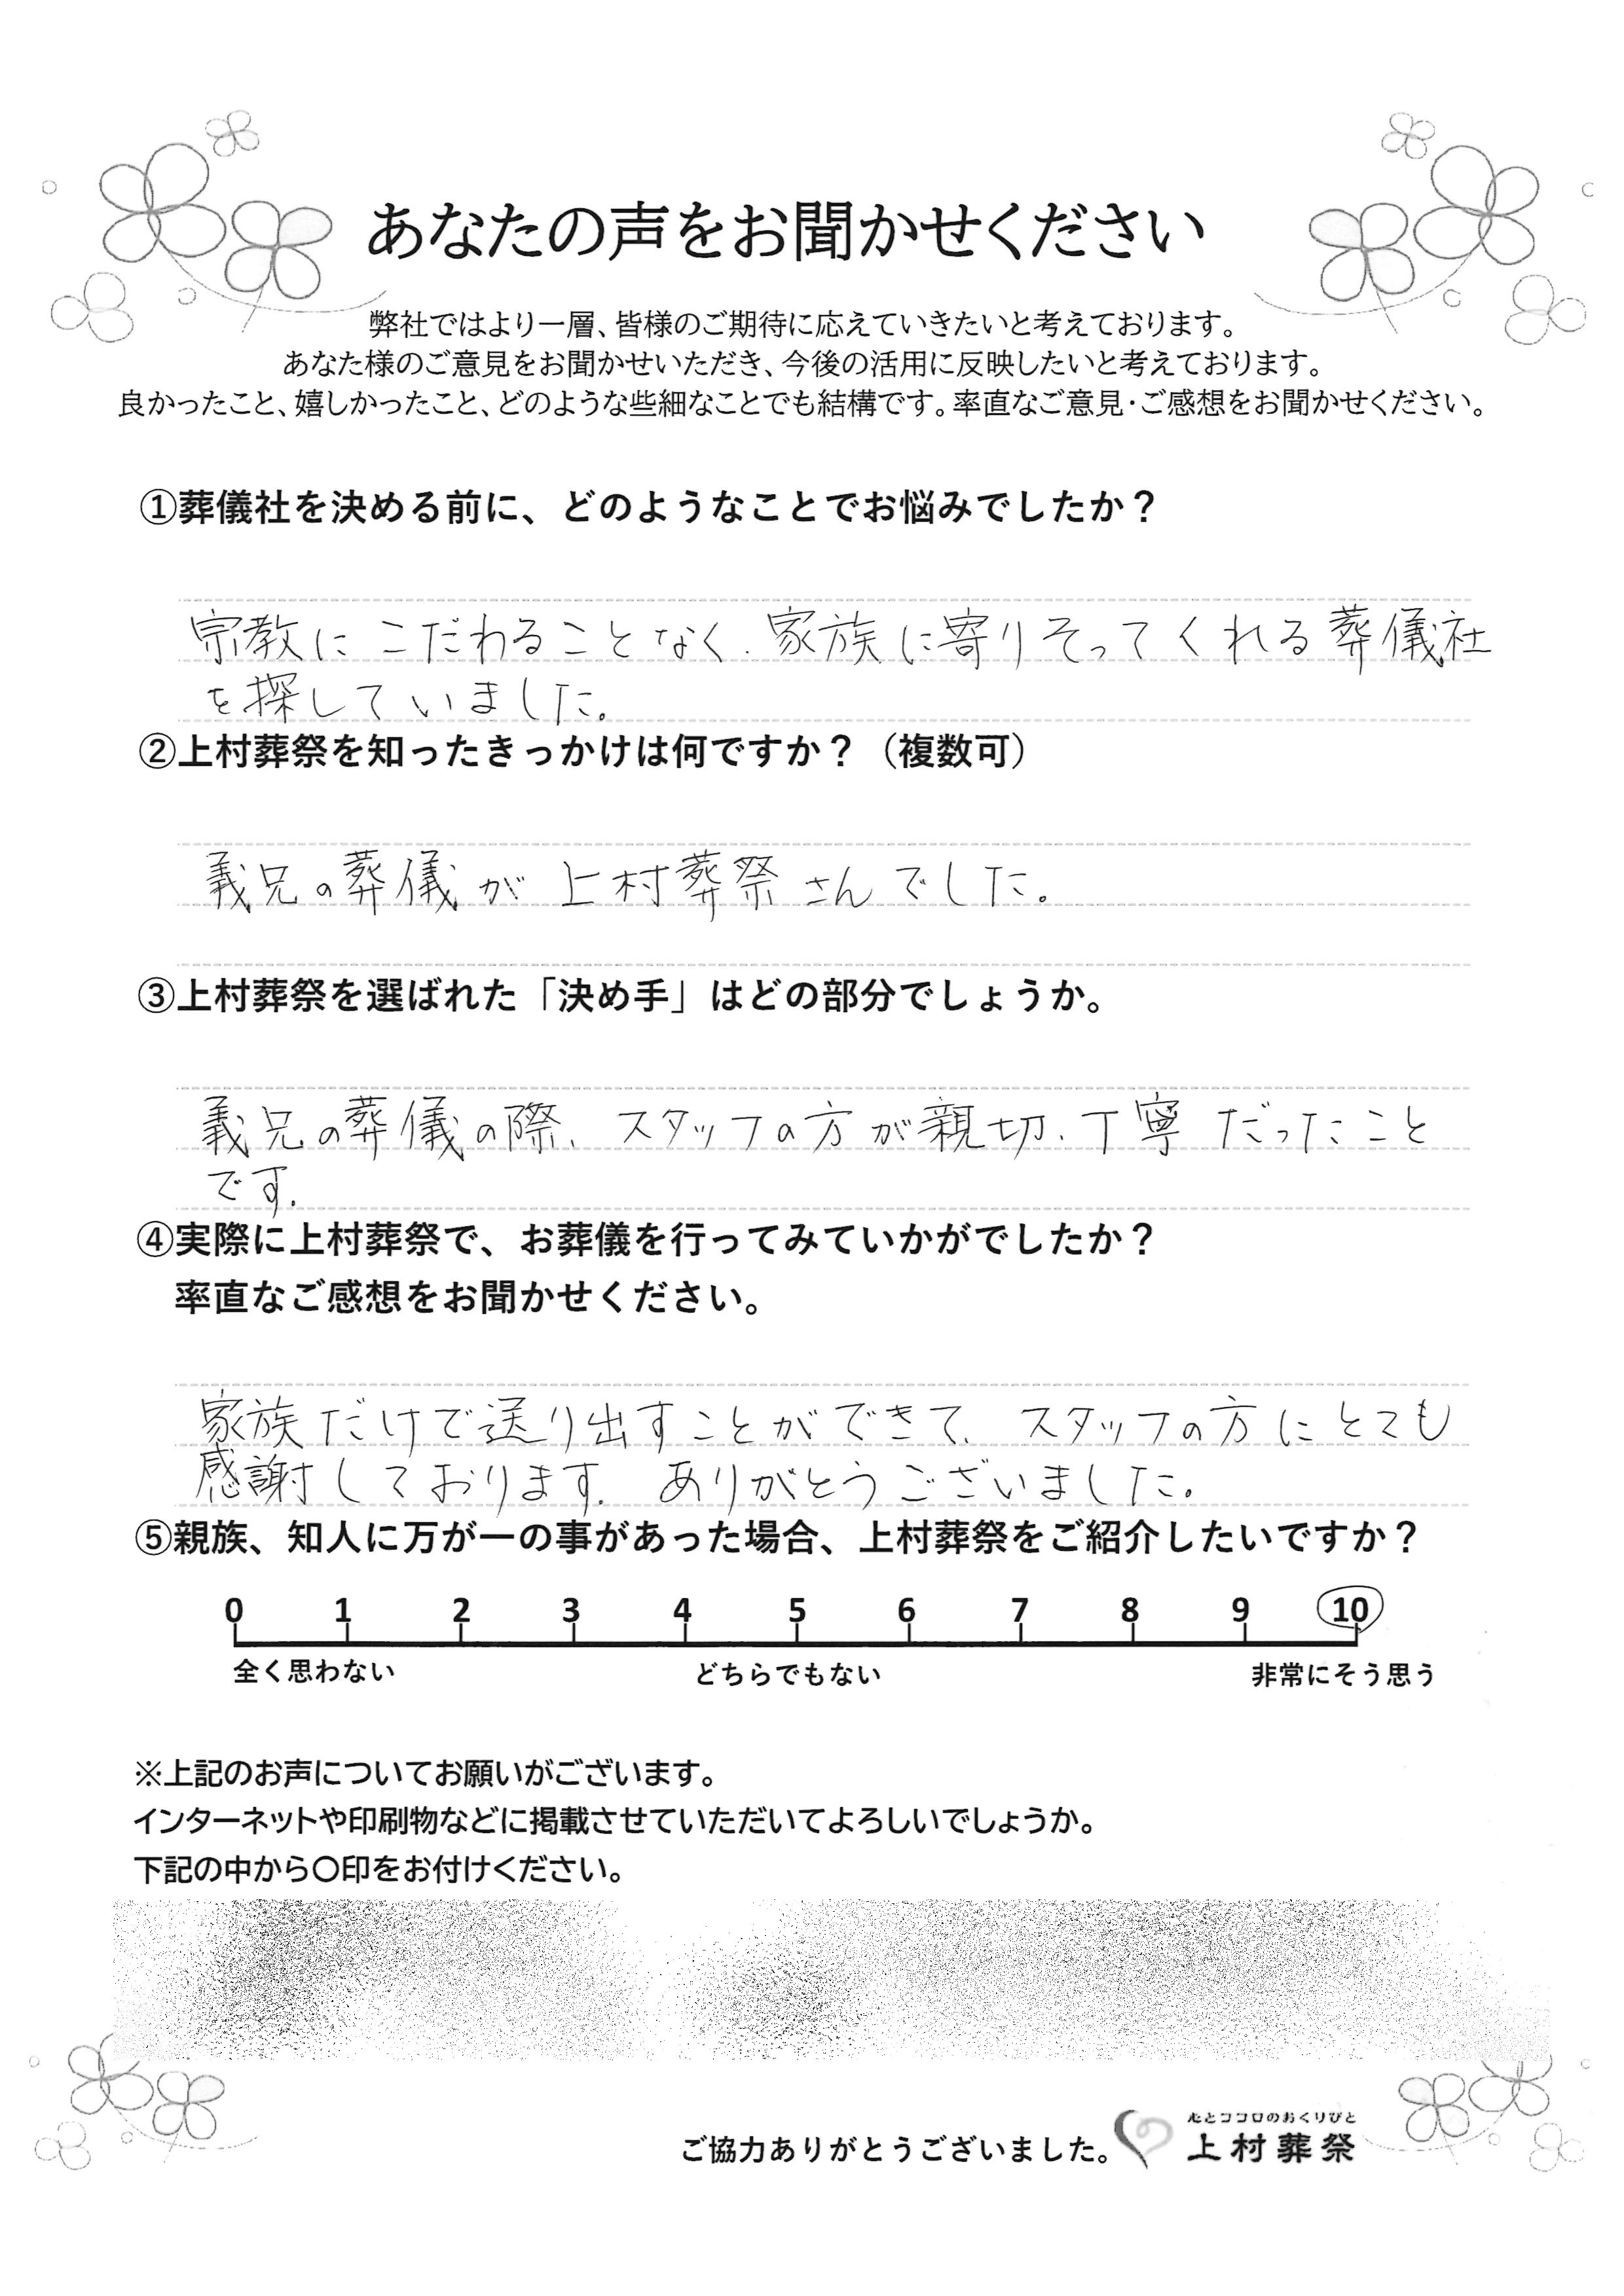 あなたの声をお聞かせください
弊社ではより一層、皆様のご期待に応えていきたいと考えております。
あなた様のご意見をお聞かせいただき、今後の活用に反映したいと考えております。
良かったこと、嬉しかったこと、どのような些細なことでも結構です。率直なご意見・ご感想をお聞かせください。
①葬儀社を決める前に、どのようなことでお悩みでしたか？
宗教にこだわることなく、家族に寄りそってくれる葬儀社
を探していました。
②上村葬祭を知ったきっかけは何ですか？（複数可）
義兄の葬儀が上村葬祭さんでした。
③上村葬祭を選ばれた「決め手」はどの部分でしょうか。
義兄の葬儀の際、スタッフの方が親切、丁寧だったこと
です。
④実際に上村葬祭で、お葬儀を行ってみていかがでしたか？
率直なご感想をお聞かせください。
家族だけで送り出すことができて、スタッフの方にとても
感謝しております。ありがとうございました。
⑤親族、知人に万が一の事があった場合、上村葬祭をご紹介したいですか？
0 1 2 3 4 5 6 7 8 9 10
全く思わない どちらでもない 非常にそう思う
※上記のお声についてお願いがございます。
インターネットや印刷物などに掲載させていただいてよろしいでしょうか。
下記の中から〇印をお付けください。
心とココロのおくりびと
ご協力ありがとうございました。上村葬祭